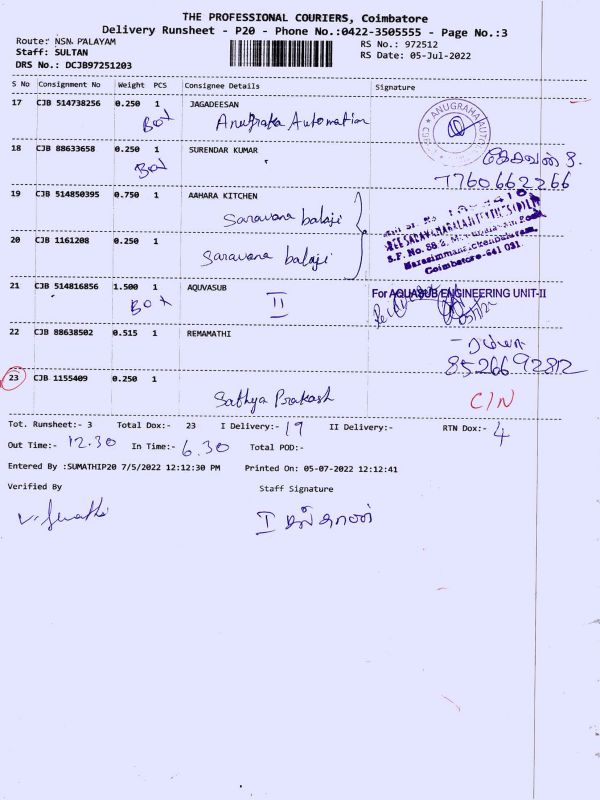 THE PROFESSIONAL COURIERS, Coimbatore
Delivery Runsheet - P20 - Phone No.:0422-3505555 - Page No.:3
Route: NSN. PALAYAM
RS No.: 972512
Staff: SULTAN
RS Date: 05-Jul-2022
DRS No.: DCJB97251203
S No Consignment No Weight PCS Consignee Details Signature
17 CJB 514738256 0.250 1 JAGADEESAN
Box Anugraha Automation
18 CJB 88633658 0.250 1 SURENDAR KUMAR
Box
7760662266
19 CJB 514850395 0.750 1 AAHARA KITCHEN
Saravana balaji
20 CJB 1161208 0.250 1
Saravana balaji
Coimbatore-641 031
21 CJB 514816856 1.500 1 AQUVASUB
Box II
For AQUASUB ENGINEERING UNIT-II
22 CJB 88638502 0.515 1 REMAMATHI
8526692812
23 CJB 1155409 0.250 1
Sathya Prakash C/N
Tot. Runsheet:- 3 Total Dox:- 23 I Delivery:- 19 II Delivery:- RTN Dox:- 4
Out Time:- 12.30 In Time:- 6.30 Total POD:-
Entered By :SUMATHIP20 7/5/2022 12:12:30 PM Printed On: 05-07-2022 12:12:41
Verified By Staff Signature